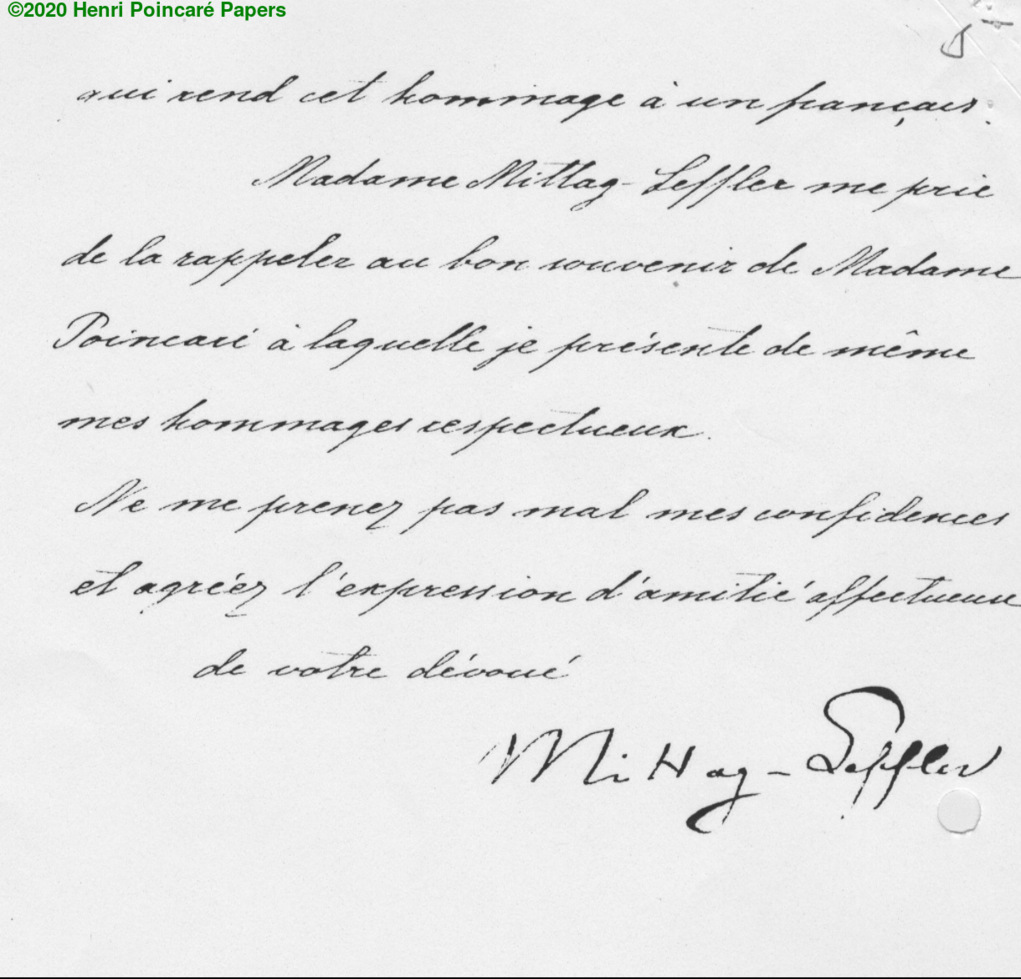 ©2020 Henri Poincaré Papers
qui rend cet hommage à un français.
Madame Mittag-Leffler me prie
de la rappeler au bon souvenir de Madame
Poincaré à laquelle je présente de même
mes hommages respectueux.
Ne me prenez pas mal mes confidences
et agréez l'expression d'amitié affectueuse
de votre dévoué
Mittag-Leffler